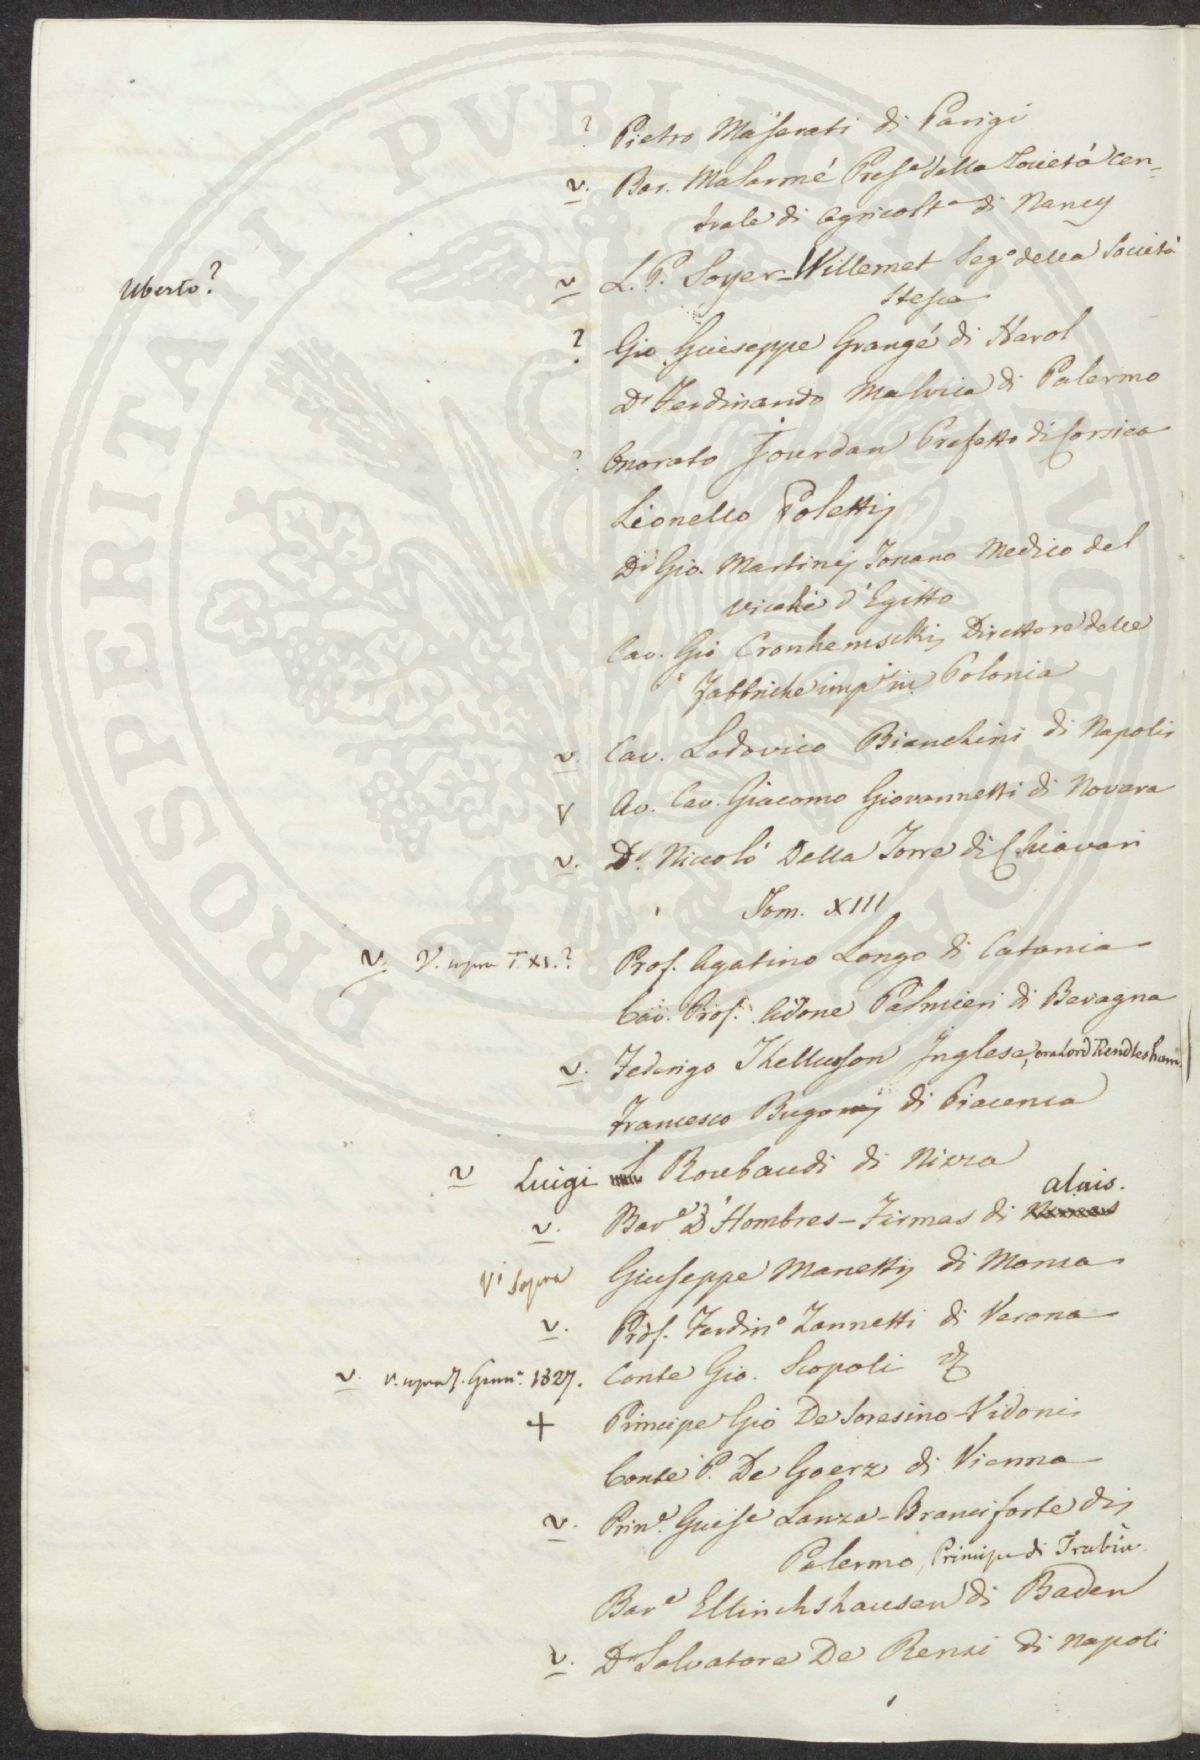 ? Pietro Masserati di Parigi
v. Bar. Malarmé Pres.e della Società Cen-
trale di Agricolt.a di Nancy
Uberto? v L. P. Soyer-Willemet Seg.o della Società
stessa
? Gio. Giuseppe Grangé di Harol
Dr Ferdinando Malvica di Palermo
? Onorato Jourdan Prefetto di Corsica
Lionello Poletti
Dr Gio. Martini Toscano Medico del
Viceré d'Egitto
Cav. Gio Direttore delle
Fabbriche imp.i in Polonia
v. Cav. Lodovico Bianchini di Napoli
V Av. Cav. Giacomo Giovannetti di Novara
v. Dr. Niccolò Della Torre di Chiavari
Tom. XIII
v. V. sopra T. XI.? Prof. Agatino Longo di Catania
Cav. Prof. Adone Palmieri di Bevagna
v. Federigo Thellusson Inglese, ora Lord Rendlesham.
Francesco Bugoni di Piacenza
v Luigi Roubaudi di Nizza
alais.
v. Bar.e D'Hombres-Firmas di Nimes
V.i Sopra Giuseppe Manetti di Monza
v. Prof. Ferdin.o Zannetti di Verona
v. v. sopra 7. Genn.o 1827. Conte Gio. Scopoli
+ Principe Gio De Soresino-Vidoni
Conte P. De Goerz di Vienna
v. Prin.e Gius.e Lanza-Branciforte di
Palermo, Principe di Trabia.
Bar.e Ellinchshausen di Baden
v. Dr Salvatore De Renzi di Napoli